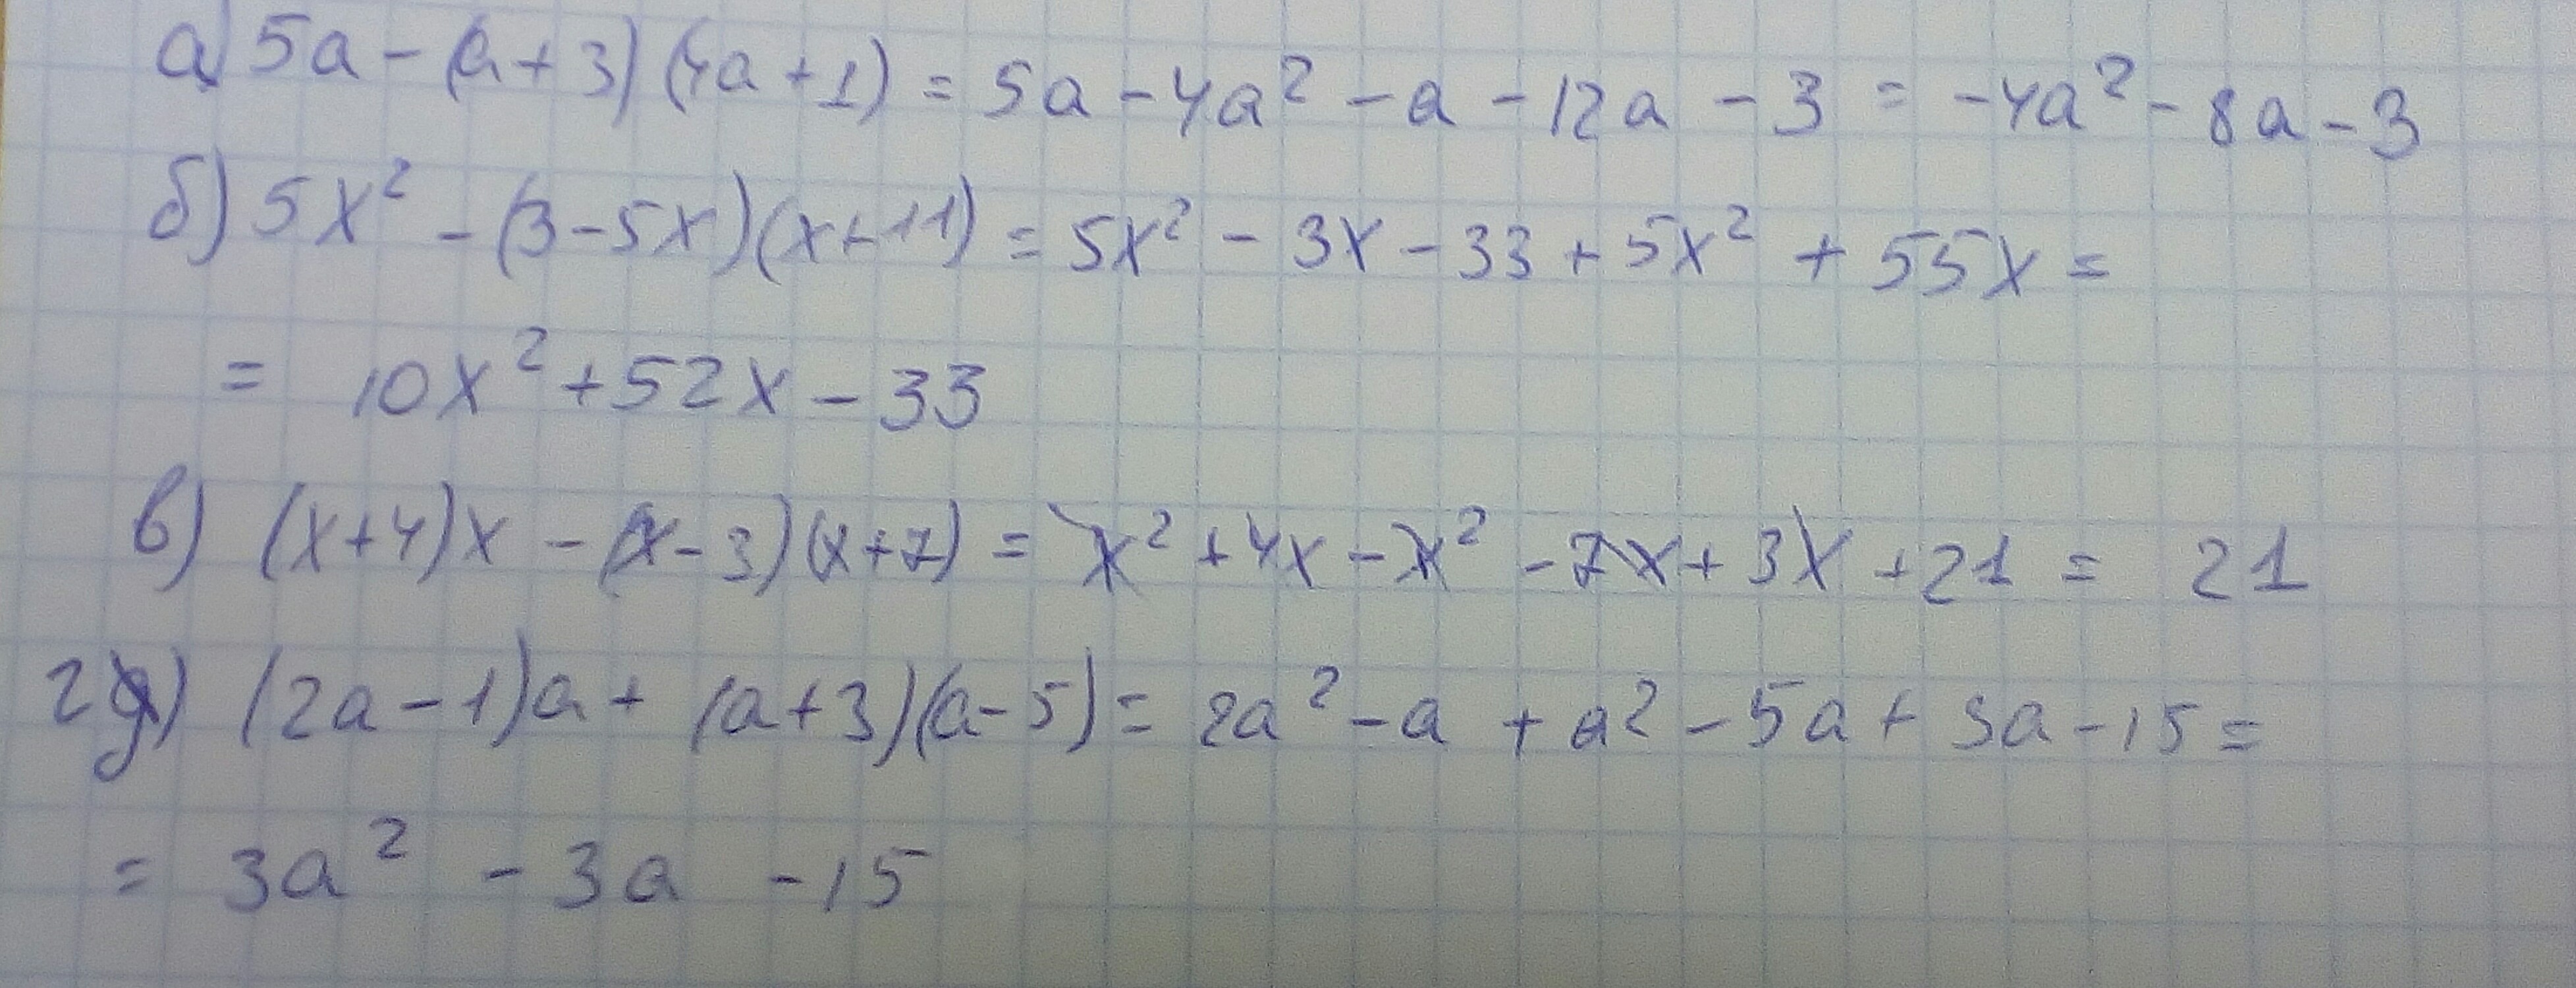 а) 5a - (a + 3)(4a + 1) = 5a - 4a² - a - 12a - 3 = -4a² - 8a - 3
б) 5x² - (3 - 5x)(x + 11) = 5x² - 3x - 33 + 5x² + 55x =
= 10x² + 52x - 33
в) (x + 4)x - (x - 3)(x + 7) = x² + 4x - x² - 7x + 3x + 21 = 21
г) (2a - 1)a + (a + 3)(a - 5) = 2a² - a + a² - 5a + 3a - 15 =
= 3a² - 3a - 15